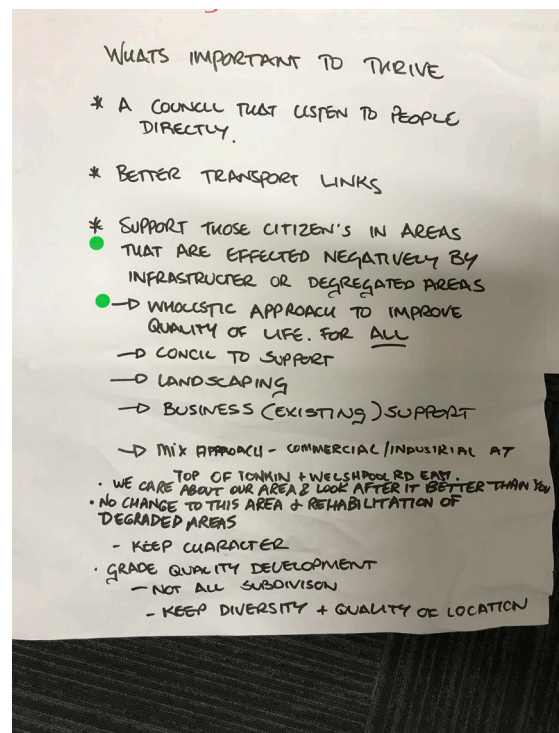 WHATS IMPORTANT TO THRIVE
* A COUNCIL THAT LISTEN TO PEOPLE
DIRECTLY.
* BETTER TRANSPORT LINKS
* SUPPORT THOSE CITIZEN'S IN AREAS
THAT ARE EFFECTED NEGATIVELY BY
INFRASTRUCTER OR DEGREGATED AREAS
→ WHOLISTIC APPROACH TO IMPROVE
QUALITY OF LIFE. FOR ALL
→ CONCIL TO SUPPORT
→ LANDSCAPING
→ BUSINESS (EXISTING) SUPPORT
→ MIX APPROACH - COMMERCIAL/INDUSTRIAL AT
TOP OF TONKIN + WELSHPOOL RD EAST.
• WE CARE ABOUT OUR AREA & LOOK AFTER IT BETTER THAN YOU
• NO CHANGE TO THIS AREA & REHABILITATION OF
DEGRADED AREAS
- KEEP CHARACTER
• GRADE QUALITY DEVELOPMENT
- NOT ALL SUBDIVISON
- KEEP DIVERSITY + QUALITY OF LOCATION